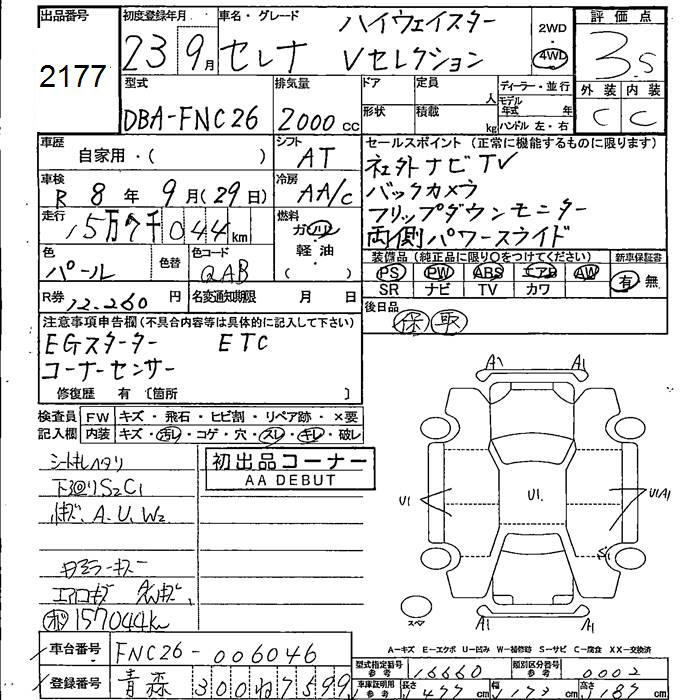 出品番号
2177
初度登録年月
23 9月
車名・グレード
セレナ ハイウェイスター
Vセレクション
2WD
4WD
評価点
3.5
外装 内装
C C
型式
DBA-FNC26
排気量
2000 cc
ドア
形状
定員
人
積載
kg
ディーラー・並行
モデル年式 年
ハンドル 左・右
車歴
自家用・( )
シフト
AT
車検
R 8年 9月(29日)
冷房
AA/C
走行
15万7千044km
燃料
ガソリン
軽油
色
パール
色替
色コード
QAB
R券
12.260 円
名変通知期限 月 日
セールスポイント (正常に機能するものに限ります)
社外ナビTV
バックカメラ
フリップダウンモニター
両側パワースライド
装備品 (純正品に限り○をつけてください)
PS PW ABS エアB AW
SR ナビ TV カワ
新車保証書
有 無
後日品
保 取
注意事項申告欄 (不具合内容等は具体的に記入して下さい)
EGスターター ETC
コーナーセンサー
修復歴 有 〔箇所 〕
検査員記入欄
FW キズ・飛石・ヒビ割・リペア跡・×要
内装 キズ・汚レ・コゲ・穴・スレ・キレ・破レ
初出品コーナー
AA DEBUT
下廻りS2C1
A.U.W2
157044km
A1 A1
U1 U1. U1A1
S1
スペア
A1 A1
A-キズ E-エクボ U-凹み W-補修跡 S-サビ C-腐食 XX-交換済
車台番号
FNC26-006046
登録番号
青森 300 ね 7599
型式指定番号
参考
16660
類別区分番号
参考
0002
車庫証明用
参考
長さ 477 cm
幅 173 cm
高さ 187 cm